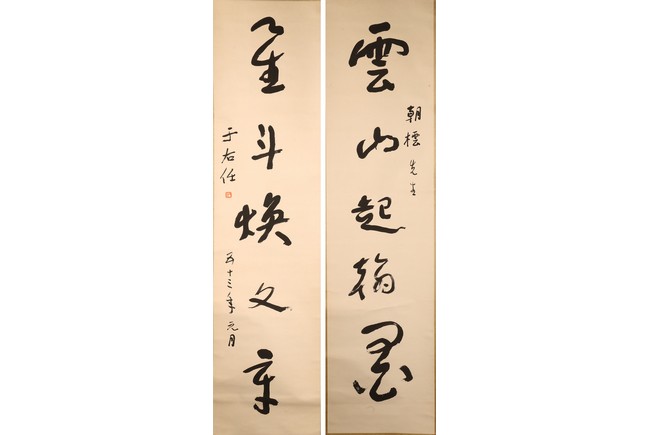 雲山起翰墨
朝橒先生
星斗煥文章
于右任
五十三年元月